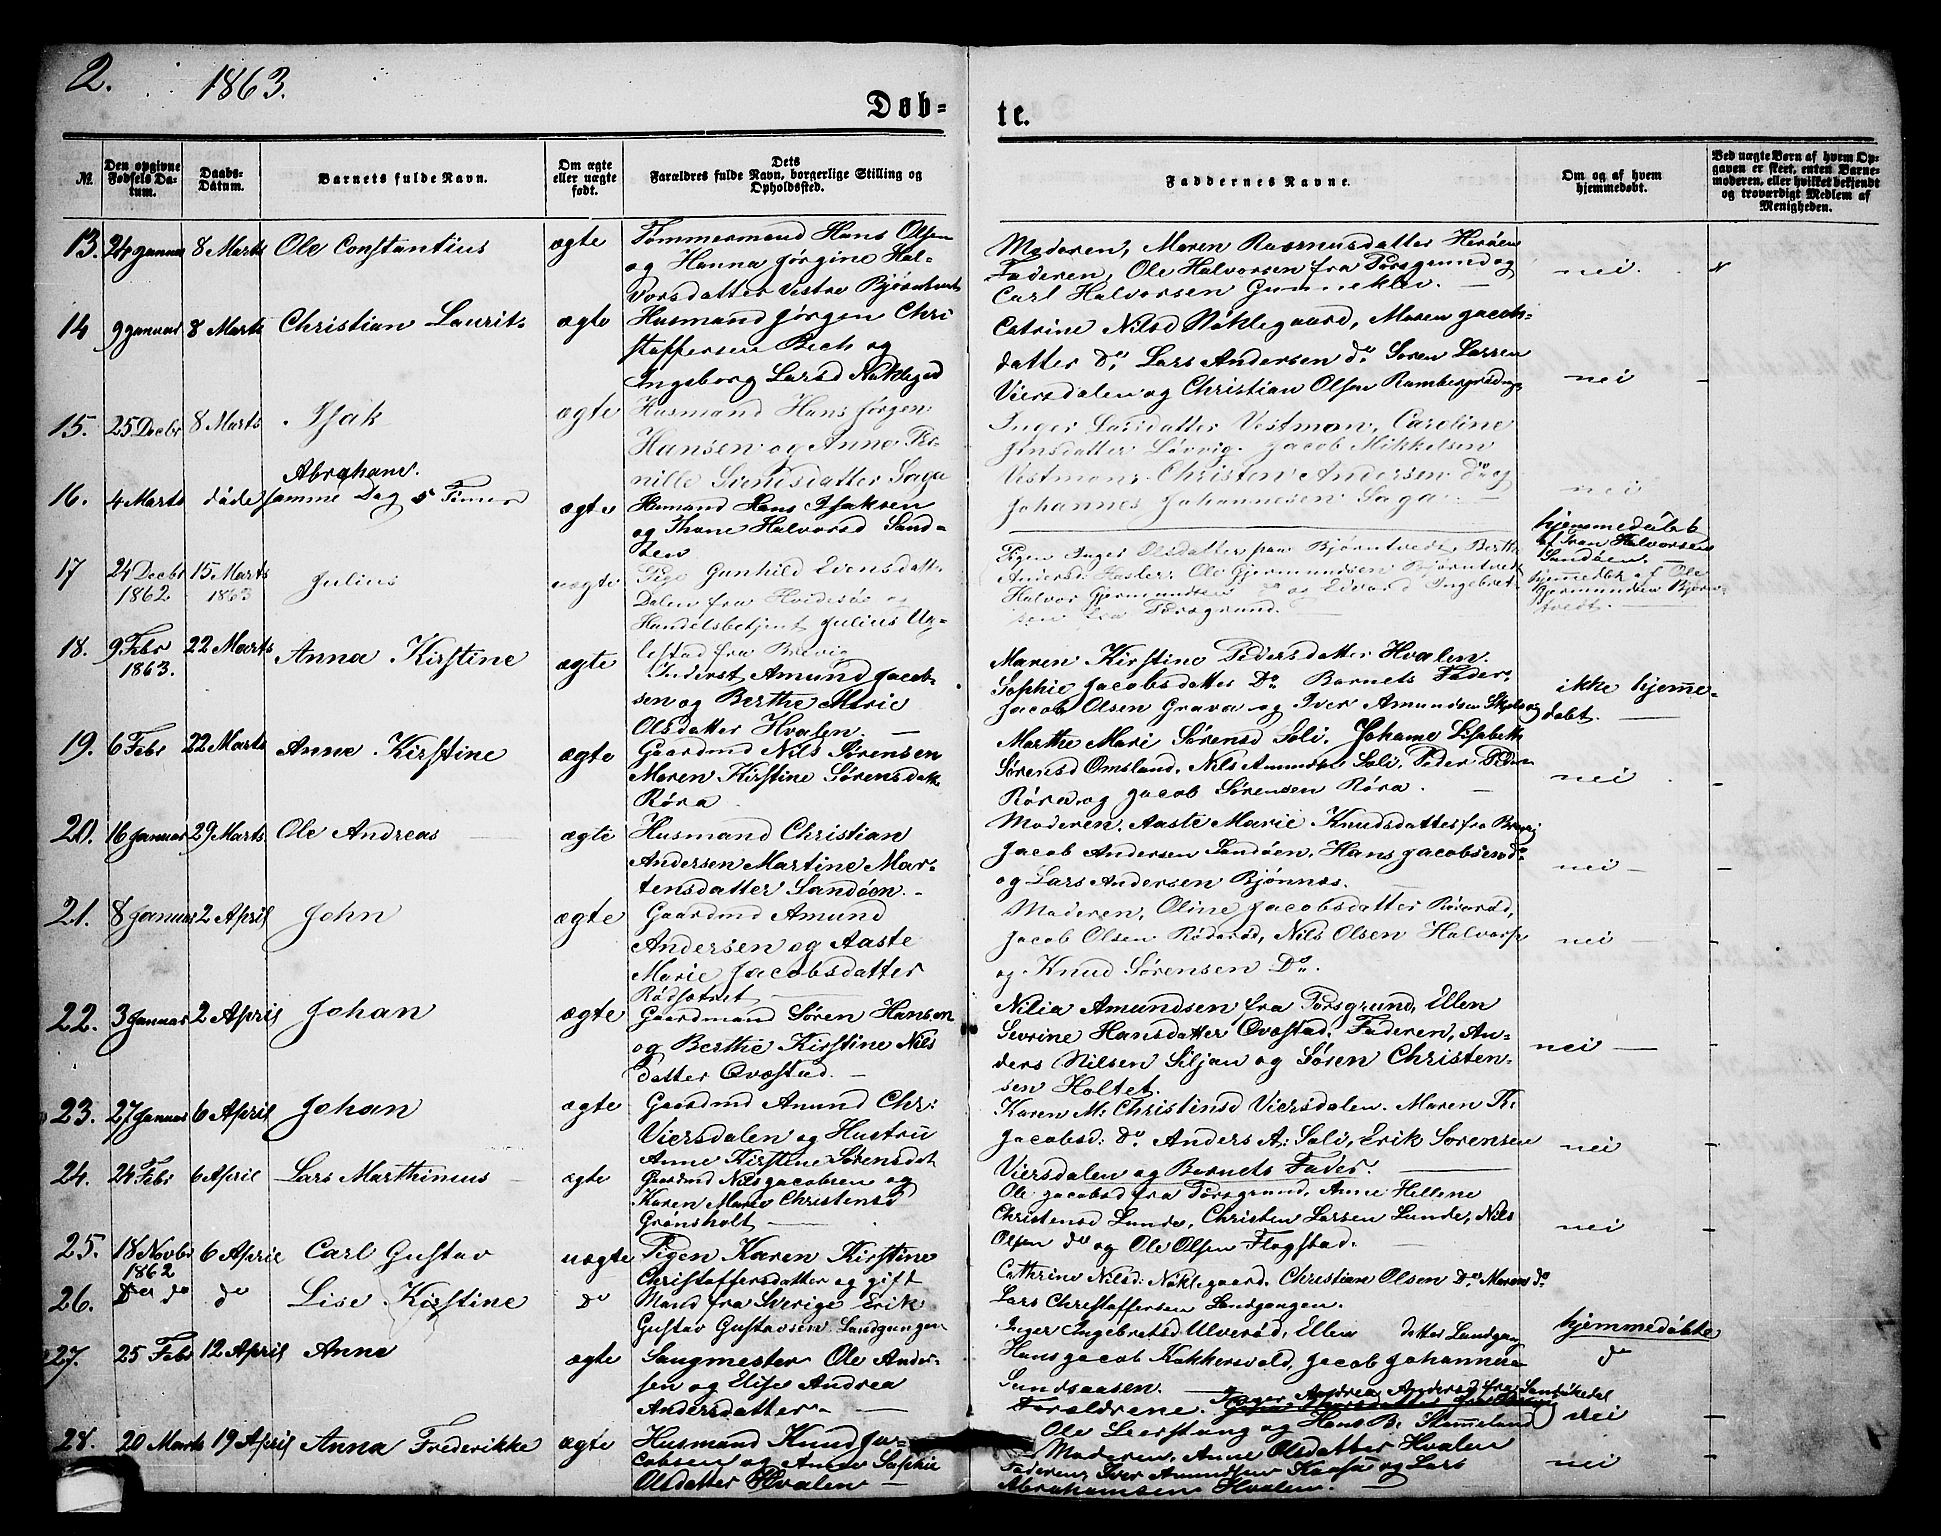 2. 1863.
Døb-
te.
№.
Den opgivne Fødsels Da-tum.
Daabs-Datum.
Barnets fulde Navn.
Om ægte eller uægte født.
Dets Forældres fulde Navn, borgerlige Stilling og Opholdssted.
Faddernes Navne.
Om og af hvem hjemmedøbt.
Ved uægte Børn af hvem Op-gaven er skeet, enten Barne-moderen, eller hvilket bekjendt og troværdigt Medlem af Menigheden.
13. 24 Januar 8 Marts Ole Constantius ægte Tømmermand Hans Olsen
og Hanna Jørgine Hal-
vorsdatter Vestre
Moderen, Maren Rasmusdatter Herøen
Faderen, Ole Halvorsen fra Porsgrund og
Carl Halvorsen Gunneklev. nei.
14 9 Januar 8 Marts Christian Laurits ægte Husmand Jørgen Chri
stoffersen Bech og
Ingeborg Larsd Nøklegrd
Catrine Nilsd Nøklegaard, Maren Jacob-
datter do, Lars Andersen do Søren Larsen
Viersdalen og Christian Olsen nei
15. 25 Decbr 8 Marts Isak ægte Husmand Hans Jørgen
Hansen og Anne Per-
nille Saga
Inger Larsdatter Vestmon, Caroline
Jensdatter Løvvig. Jacob Mikkelsen
Vestmon, Christen Andersen do og
Johannes Johannesen Saga. nei
16. 4 Marts døde samme Dag 5 Timer Abrahane. ægte Husmand Hans Isaksen
og Thone Halvorsd Sand-
øen
hjemmedøbt
af Halvorsen
Sandøen.
17 24 Decbr 1862 15 Marts 1863 Julius uægte Pige Gunhild Evensdatter
Dalen fra Hvidesø og
Handelsbetjent Julius
fra Brevig
Pigen Inger Olsdatter paa Bjørntvedt, Berthe
Andersd Hasler, Ole Gjermundsen Bjørntvedt
Halvor Gjermundsen do og Edvard Ingebret-
sen fra Porsgrund.
hjemmedbt af Ole
Gjermundsen Bjørn-
tvedt.
18. 9 Febr 1863. 22 Marts Anna Kirstine ægte Inderst Amund Jacob-
sen og Berthe Marie
Olsdatter Hvalen.
Maren Kirstine Pedersdatter Hvalen.
Sophie Jacobsdatter Do Barnets Fader,
Jacob Olsen Grava og Iver Amundsen
ikke hjemme-
døbt.
19. 6 Febr 22 Marts Anne Kirstine ægte Gaardmd Nils Sørensen
Maren Kirstine Sørensdatt
Røra
Marthe Mari Sørensd Soli. Johanne Lisabeth
Sørensd Omsland, Nils Amundsen Soli, Peder
Røra og Jacob Sørensen Røra. nei
20. 16 Januar 29 Marts Ole Andreas ægte Husmand Christian
Andersen Martine Mar-
tensdatter Sandøen.
Moderen, Aaste Marie Knudsdatter fra Brevig
Jacob Andersen Sandøen, Hans Jacobsen do
og Lars Andersen Bjønnes. nei
21. 8 Januar 2 April John ægte Gaardmd Amund
Andersen og Aaste
Marie Jacobsdatter
Rødsætret
Moderen, Oline Jacobsdatter Røderød,
Jacob Olsen Røderød, Nils Olsen
og Knud Sørensen Do. nei
22. 3 Januar 2 April Johan ægte Gaardmand Søren Hansen
og Berthe Kirstine Nils
datter Qvæstad.
Nilia Amundsen fra Porsgrund, Ellen
Sevrine Hansdatter Qvæstad, Faderen, An-
ders Nilsen Siljan og Søren Christen-
sen Holtet. nei
23. 27 Januar 6 April Johan ægte Gaardmd Amund Chr:
Viersdalen og Hustru
Anne Kirstine Sørensdt
Karen M: Christensd Viersdalen. Maren K:
Jacobsd: do, Anders A: Soli, Erik Sørensen
Viersdalen og Barnets Fader. nei
24. 24 Febr 6 April Lars Marthinius ægte Gaardmd Nils Jacobsen og
Karen Marie Christensd
Grønsholt
Ole Jacobsd fra Porsgrund, Anne Hellene
Christensd Lunde, Christen Larsen Lunde, Nils
Olsen do og Ole Olsen Flogstad. nei
25. 18 Novbr 1862 6 April Carl Gustav uægte Pigen Karen Kirstine
Christoffersdatter og gift
Cathrine Nilsd: Nøklegaard, Christian Olsen Do Maren do
Lars Christoffersen Landgangen.
26. Do do do Lise Kirstine Do Mand fra Sverige Erik
Gustav Gustavsen Landgangen
Inger Ingebretsd Ulverød, Ellen datter Landgang
Hans Jacob Kokkersvold, Jacob Johannesen
Sundsaasen. hjemmedøbte
do
27. 25 Febr 12 April Anne ægte Saugmester Ole Ander-
sen og Elise Andrea
Andersdatter
Forældrene. Inger Andrea Andersd fra
Ole Leerstang og Hans B. Stammeland nei
28. 20 Marts 19 April Anna Frederikke ægte Husmand Knud Ja-
cobsen og Anne Sophie
Olsdatter Hvalen
Moderen, Anne Olsdatter Hvalen
Faderen, Iver Amundsen Kaasa og Lars
Abrahamsen Hvalen. nei